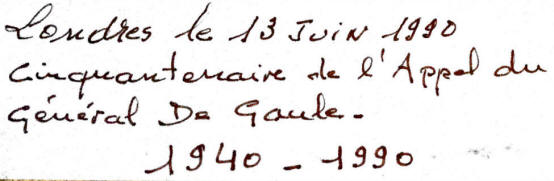 Londres le 13 Juin 1990
Cinquantenaire de l'Appel du
Général De Gaule.
1940 - 1990